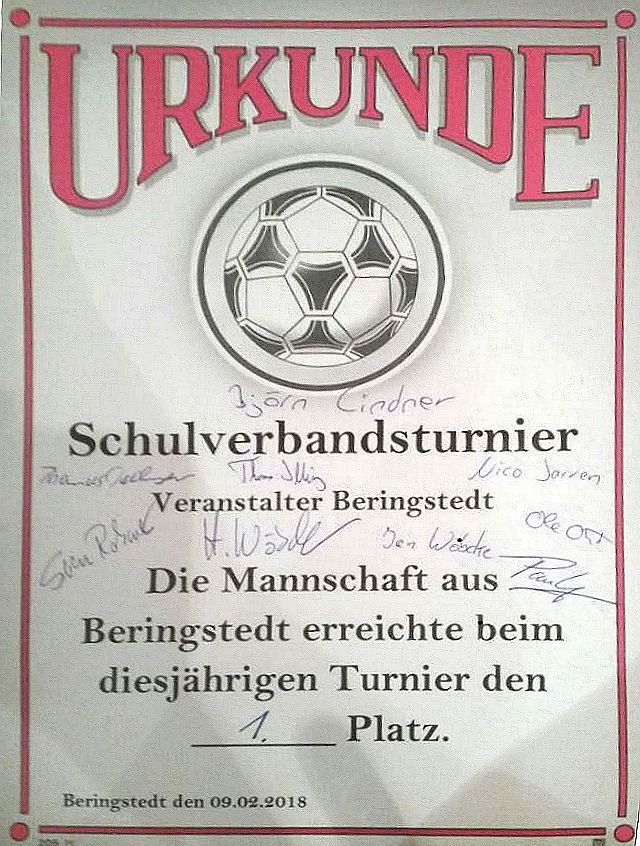 URKUNDE
Björn Lindner
Schulverbandsturnier
Nico Jorren
Veranstalter Beringstedt
Ole Ott
H. Wösch
Jan Wösche
Die Mannschaft aus
Beringstedt erreichte beim
diesjährigen Turnier den
1. Platz.
Beringstedt den 09.02.2018